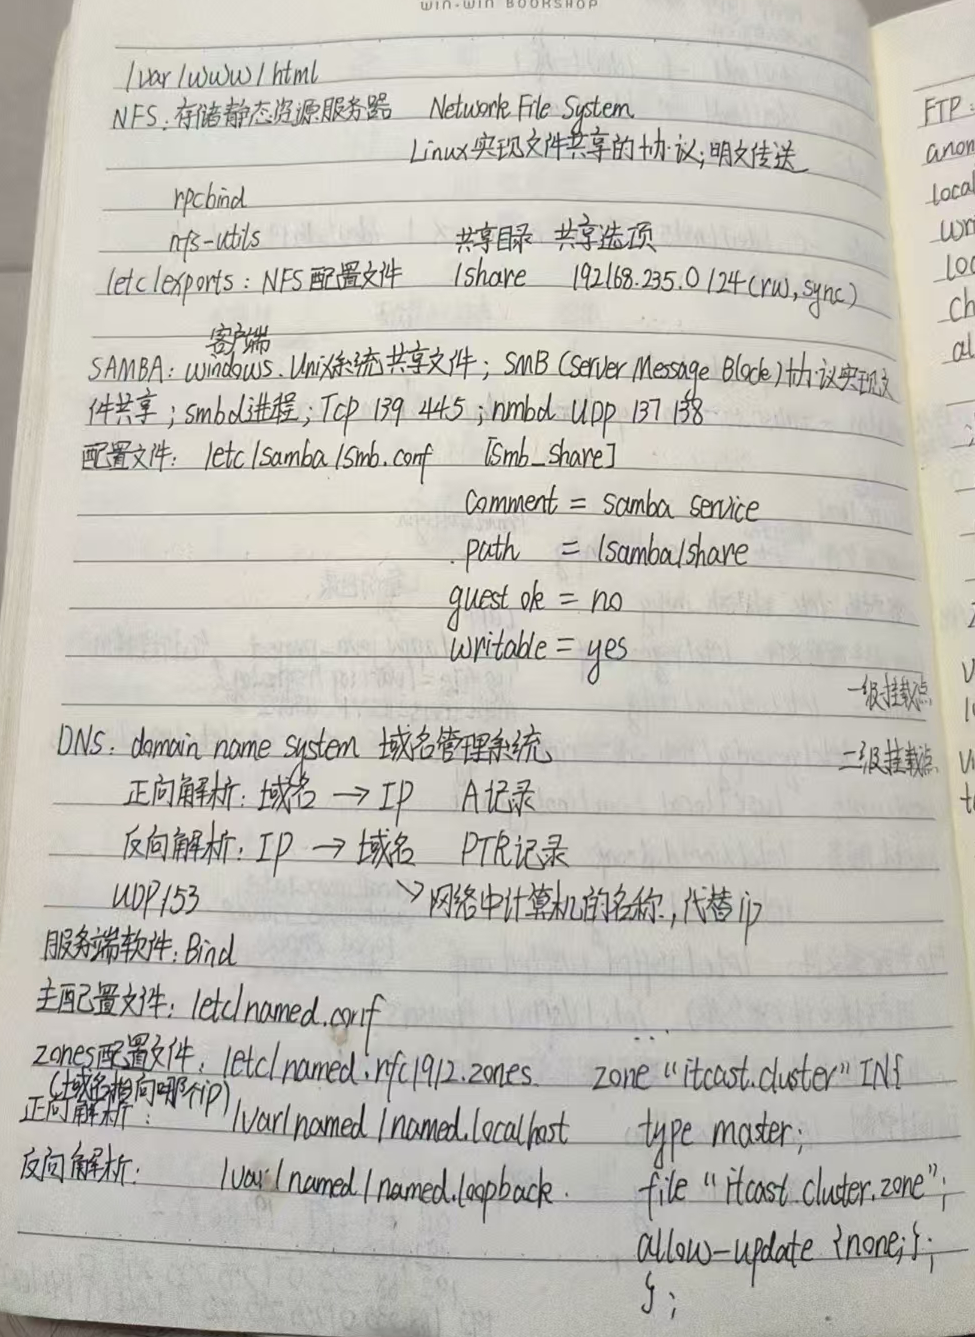 WIN-WIN BOOKSHOP
/var/www/html
NFS: 存储静态资源服务器 Network File System
Linux实现文件共享的协议;明文传送
rpcbind
nfs-utils 共享目录 共享选项
/etc/exports: NFS配置文件 /share 192.168.235.0/24(rw,sync)
客户端
SAMBA: windows、Unix系统共享文件; SMB(Server Message Block)协议实现文
件共享; smbd进程; TCP 139 445; nmbd UDP 137 138
配置文件: /etc/samba/smb.conf [smb_share]
comment = samba service
path = /samba/share
guest ok = no
writable = yes
一级挂载点
DNS: domain name system 域名管理系统
二级挂载点
正向解析: 域名 → IP A记录
反向解析: IP → 域名 PTR记录
UDP/53 ↘网络中计算机的名称,代替ip
服务端软件: Bind
主配置文件: /etc/named.conf
zones配置文件: /etc/named.rfc1912.zones zone "itcast.cluster" IN{
(域名指向哪个ip)
正向解析: /var/named/named.localhost type master;
反向解析: /var/named/named.loopback. file "itcast.cluster.zone";
allow-update {none;};
};
FTP:
anon
local